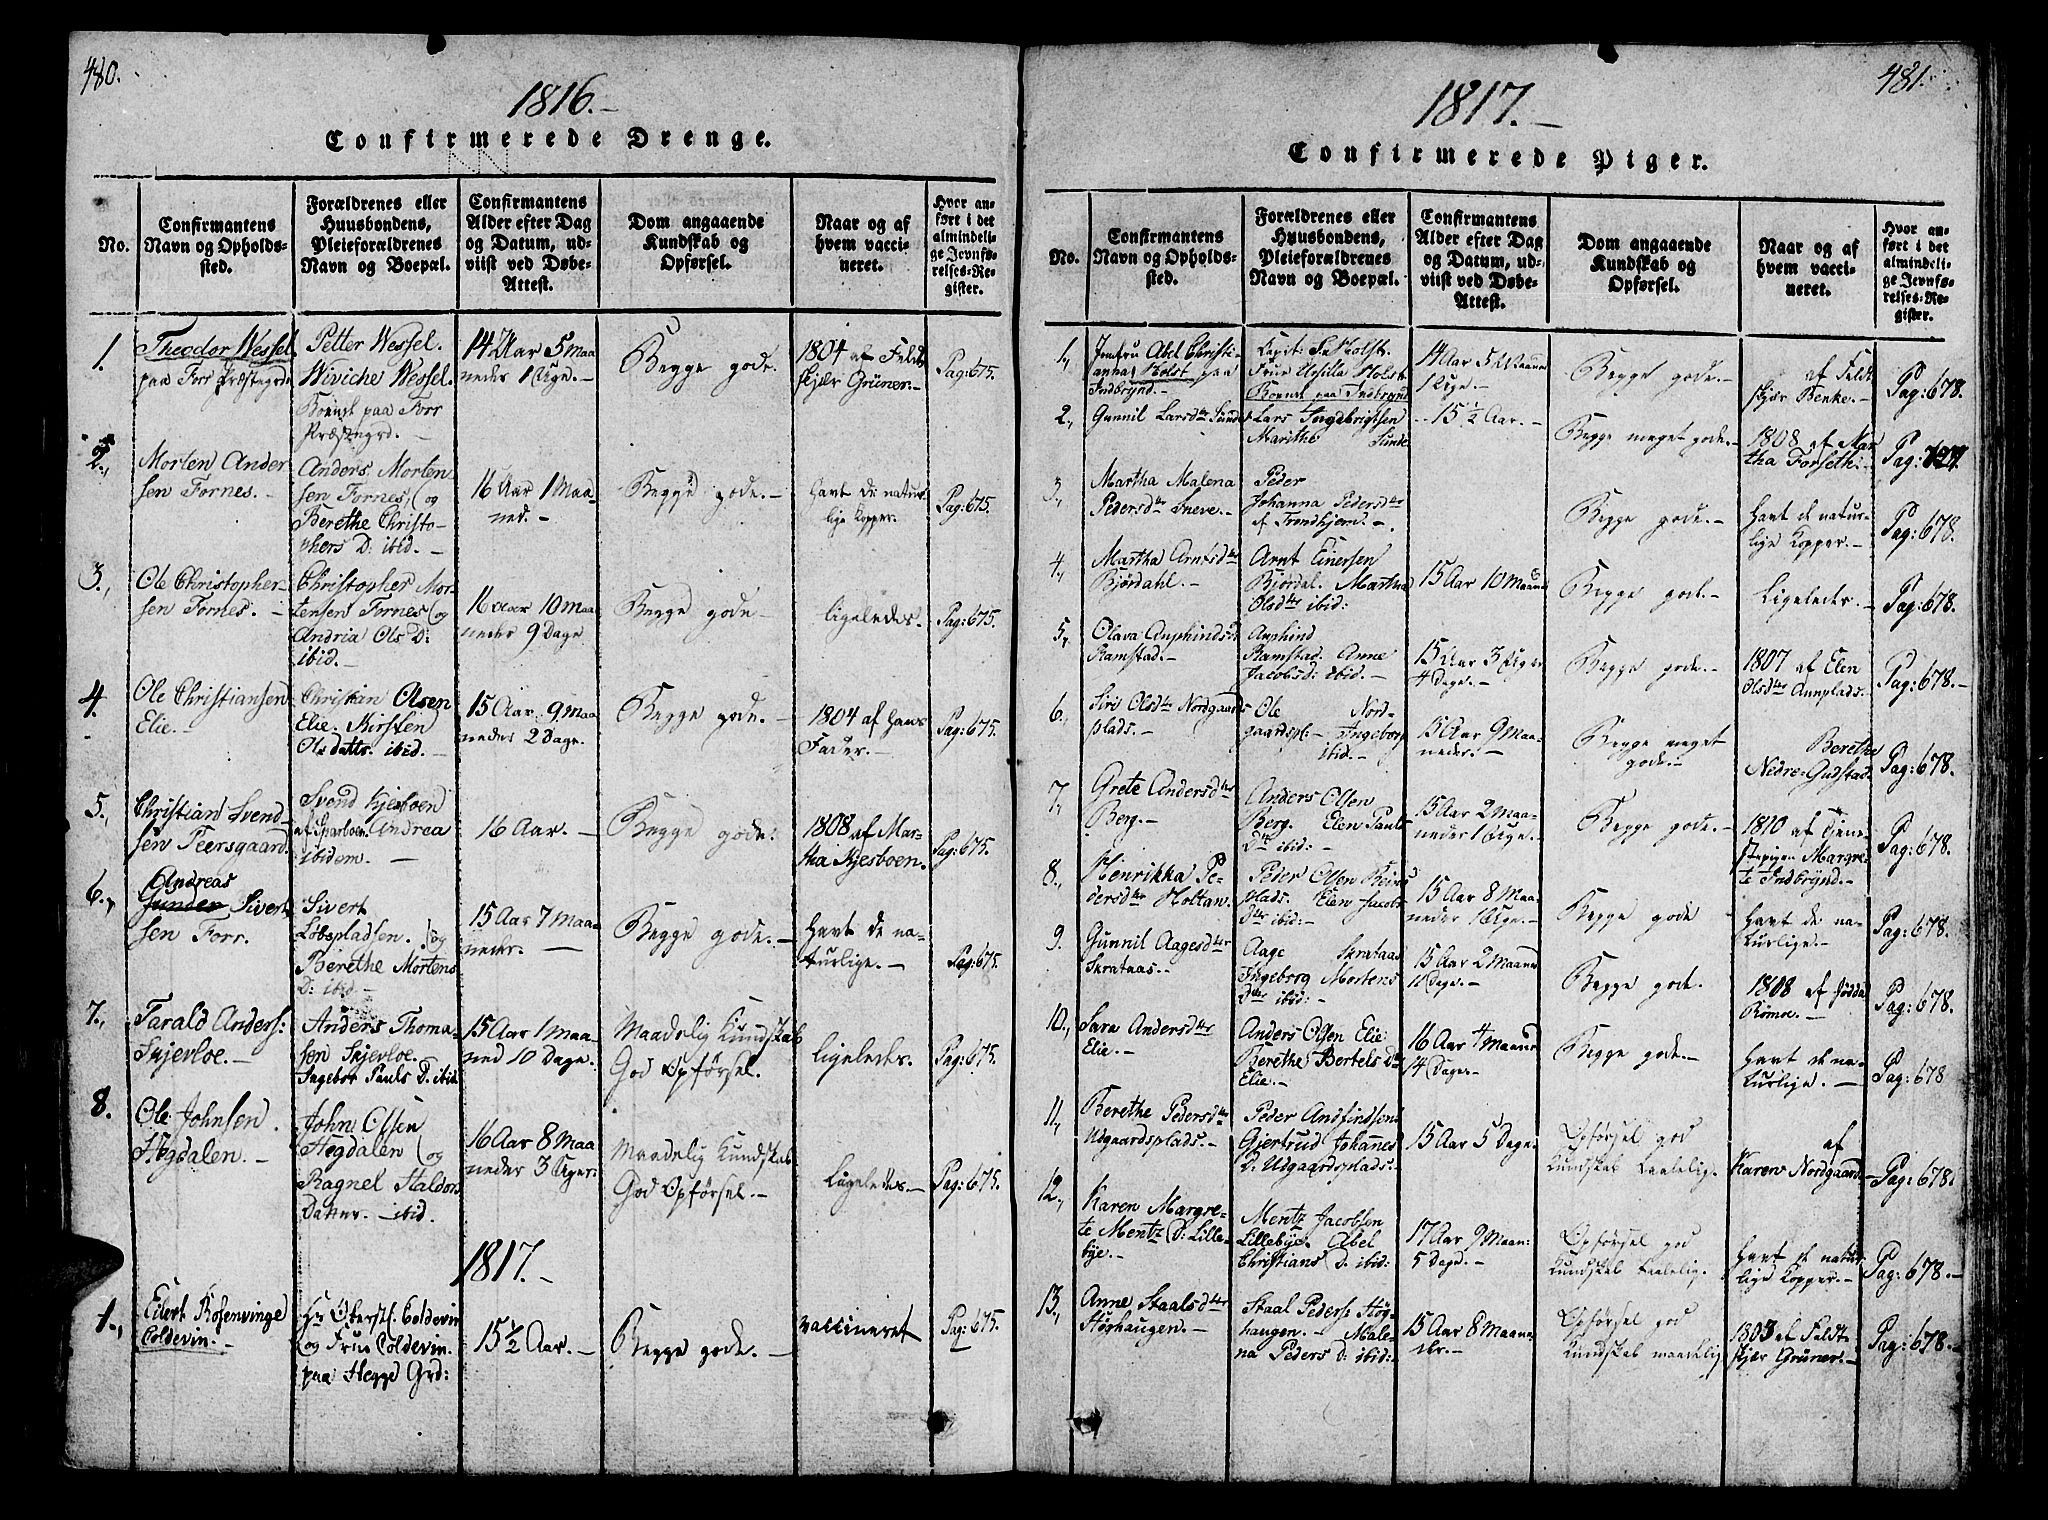 480.
1816.-
Confirmerede Drenge.
No.
Confirmantens
Navn og Opholds-
sted.
Forældrenes eller
Huusbondens,
Pleieforældrenes
Navn og Boepæl.
Confirmantens
Alder efter Dag
og Datum, ud-
viist ved Døbe-
Attest.
Dom angaaende
Kundskab og
Opførsel.
Naar og af
hvem vacci-
neret.
Hvor an-
ført i det
almindeli-
ge Jevnfø-
relses-Re-
gister.
1.
Theodor Wessel
paa Forr Præstegrd
Petter Wessel.
Wiviche Wessel.
Boende paa Forr
Præstegrd. -
14 Aar 5 Maa
neder 1 Uge. -
Begge gode.
1804 af Feldt
skjær Grüner. -
Pag: 675.
2.,
Morten Ander
sen Fornes. -
Anders Morten
sen Fornes, (og
Berethe Christo-
phers D: ibid. -
16 Aar 1 Maa-
ned. -
Begge gode. -
Havt de natur
lige Kopper.
Pag: 675.
3.,
Ole Christopher-
sen Fornes. -
Christopher Mor-
tensen Fornes (og
Andria Ols D:
ibid. -
16 Aar 10 Maa-
neder 9 Dage
Begge gode -
ligeledes.
Pag: 675.
4.
Ole Christiansen
Elie. -
Christian Olsen
Elie. Kirsten
Ols dattr. ibid. -
15 Aar 9 Maa
neder 2 Dage.
Begge gode. -
1804 af hans
Fader. -
Pag: 675.
5.,
Christian Svend-
sen Peersgaard.
Svend Kjesboen
af Sparboen Andrea
ibidem. -
16 Aar. -
Begge gode.
1808 af Mar-
tha Kjesboen.
Pag: 675.
6.,
Andreas
Gunder Sivert
sen Forr.
Sivert
Løbspladsen. (og
Berethe Mortens
D: ibid. -
15 Aar 7 Maa-
neder. -
Begge gode. -
Havt de na-
turlige. -
Pag: 675.
7.,
Tarald Anders:
Skjerloe. -
Anders Thoma-
sen Skjerloe.
Ingebor Pauls D. ibid
15 Aar 1 Maa-
ned 10 Dage.
Maadelig Kundskab
God Opførsel.
ligeledes.
Pag: 675.
8.
Ole Johnsen
Hegdalen. -
John Olsen
Hegdalen (og
Ragnel Haldors
Datter. - ibid.
16 Aar 8 Maa
neder 3 Uger:
Maadelig Kundskab
God Opførsel. -
Ligeledes. -
Pag: 675.
1817. -
1.,
Eilert Rosenvinge
Coldevin. -
Hr Oberstl. Coldevin
og Frue Coldevin.
paa Hegge Grd:
15 1/2 Aar. -
Begge gode. -
vaccineret
Pag: 675.
481.
1817. -
Confirmerede Piger.
No.
Confirmantens
Navn og Opholds-
sted.
Forældrenes eller
Huusbondens,
Pleieforældrenes
Navn og Boepæl.
Confirmantens
Alder efter Dag
og Datum, ud-
viist ved Døbe-
Attest.
Dom angaaende
Kundskab og
Opførsel.
Naar og af
hvem vacci-
neret.
Hvor an-
ført i det
almindeli-
ge Jevnfø-
relses-Re-
gister.
1.,
Jomfru Abel Christi-
anna Holst paa
Indbrynd. -
Capit: Holst.
Frue Ursilla Holst
Boende paa Indbrynd
14 Aar 5 Maane
1 Uge. -
Begge gode. -
af Feldt
skjær Benke. -
Pag: 678.
2.,
Gunnil Larsdtr Sunde
Lars Ingebrigtsen
Marithe Sunde
- 15 1/2 Aar. -
Begge meget gode. -
1808 af Mar
tha Forseth.
Pag:
3.,
Martha Malena
Pedersdtr Sneve. -
Peder
Johanna Pedersdtr
af Trondhjem. -
Begge gode. -
Havt de natur-
lige Kopper. -
Pag: 678.
4.,
Martha Arntsdtr
Bjørdahl. -
Arnt Einersen
Bjørdal. Martha
Olsdtr ibid:
15 Aar 10 Maane
Begge gode. -
Ligeledes. -
Pag: 678.
5.,
Olava Anphindsdr
Ramstad. -
Anphind
Ramstad. Anne
Jacobsd: ibid. -
15 Aar 3 Uger
4 Dage. -
Begge gode. -
1807 af Elen
Olsdtr Annplads.
Pag: 678. -
6.,
Siri Olsdtr Nordgaards
plads. -
Ole Nord-
gaardspl: - Ingeborg
ibid. -
15 Aar 9 Maa-
neder. -
Begge meget
gode. -
Berethe
Nedre-Gudstad.
Pag: 678.
7.,
Grete Andersdtr
Berg. -
Anders Olsen
Berg. Elen Pauls
Dtr ibid: -
15 Aar 2 Maa-
neder 1 Uge. -
Begge gode. -
1810 af Tjene-
stepigen Margre-
te Indbrynd. -
Pag: 678.
8.,
Henrikka Pe-
dersdtr Holtan. -
Peder Olsen Beirs
plads. Elen Jacobs
dtr ibid: -
15 Aar 8 Maa-
neder 1 Uge. -
Begge gode
Havt de na-
turlige. -
Pag: 678.
9.
Gunnil Aagesdtr
Skrataas. -
Aage Skrataas
Ingeborg Mortens
Dtr ibid: -
15 Aar 2 Maane
11 Dage. -
Begge gode.
1808 af
Romoe. -
Pag: 678.
10.,
Sara Andersdtr
Elie. -
Anders Olsen Elie
Berethe Bertels Dtr
Elie. -
16 Aar 4 Maane
14 Dage. -
Begge gode. -
Havt de na-
turlige. -
Pag: 678
11.,
Berethe Pedersdtr
Udgaardsplads. -
Peder Andfindsen
Gjertrud Johannes
D. Udgaardsplads. -
15 Aar 5 Dage.
Opførsel god
Kundskab taalelig.
af
Karen Nordgaard. -
Pag: 678.
12.,
Karen Margre-
te Mentz D: Lille-
bye. -
Mentz Jacobsen
Lillebye. Abel
Christians D: ibid:
17 Aar 9 Maan:
5 Dage. -
Opførsel god
Kundskab taalelig.
Havt de natur
lige Kopper. -
Pag: 678. -
13.,
Anne Staalsdtr
Høghaugen. -
Staal Peders: Høg-
haugen. - Male-
na Peders D: ibid:
15 Aar 8 Maan-
der. -
Opførsel god
Kundskab maadelig.
1803 af Feldt-
skjær Grüner. -
Pag: 678. -